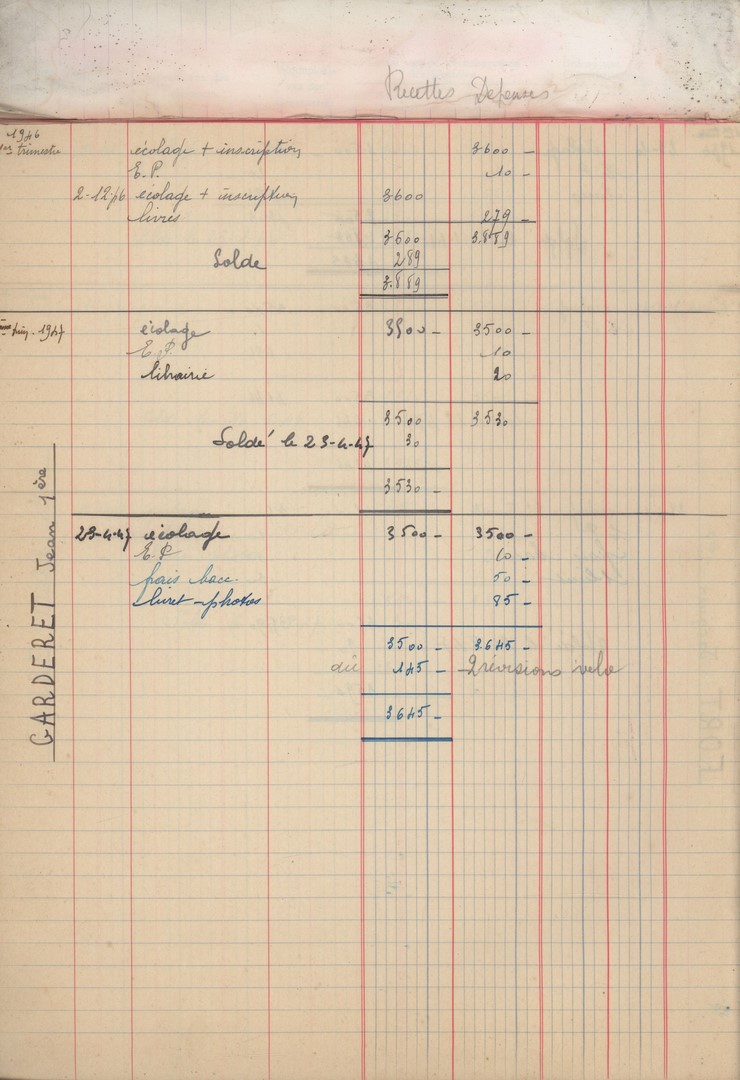 Recettes Dépenses
1946
1er trimestre écolage + inscription 3600 -
E.P. 10 -
2-12-46 écolage + inscription 3600
livres 279 -
3600 3.889
Solde 289
3.889
1947 écolage 3500 - 3500 -
E.P. 10
librairie 20
3500 3530
Soldé le 23-4-47 30
3530 -
23-4-47 écolage 3500 - 3500 -
E.P. 10 -
frais bacc. 50 -
livret - photos 85 -
3500 - 3.645 -
dû 145 - 2 révisions vélo
3645 -
GARDERET Jean 1ère